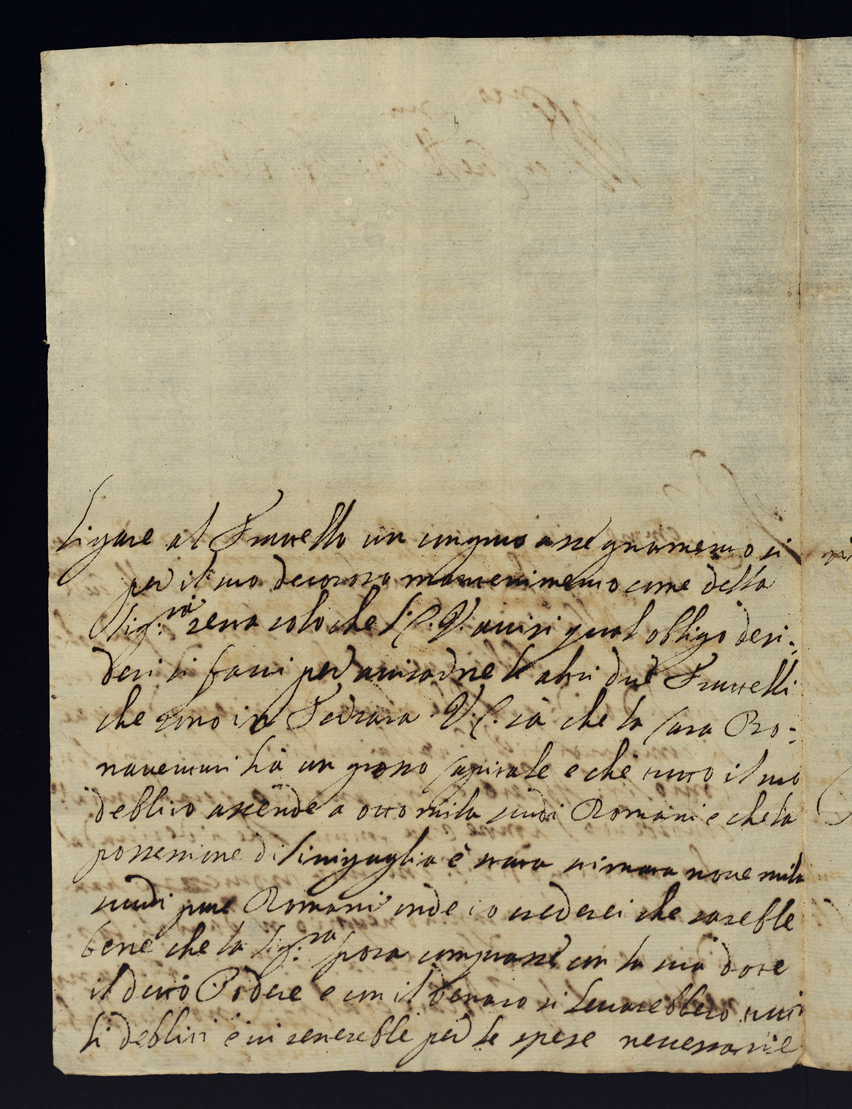 ligare al Fratello un congruo assegnamento si
per il suo decoroso mantenimento come della
Sig.ra senza solo che S. E. V. avisi qual obligo desi-
deri si facci per avisarne li altri due Fratelli
che sono in Ferrara V. E. sà che la Casa Bo-
naventuri hà un grosso Capitale e che tutto il suo
debbito assende a otto mila scudi Romani e che la
possessione di Sinigaglia è stata stimata nove mila
scudi pure Romani onde io crederei che sarebbe
bene che la Sig.ra sposa comprasse con la sua dote
il detto Podere e con il denaro si levarebbero tutti
li debbiti e vi
per le spese necessarie